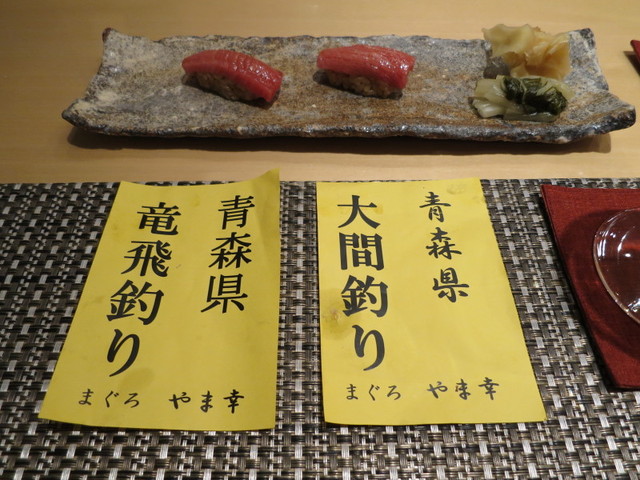 青森県
竜飛釣り
まぐろ やま幸
青森県
大間釣り
まぐろ やま幸